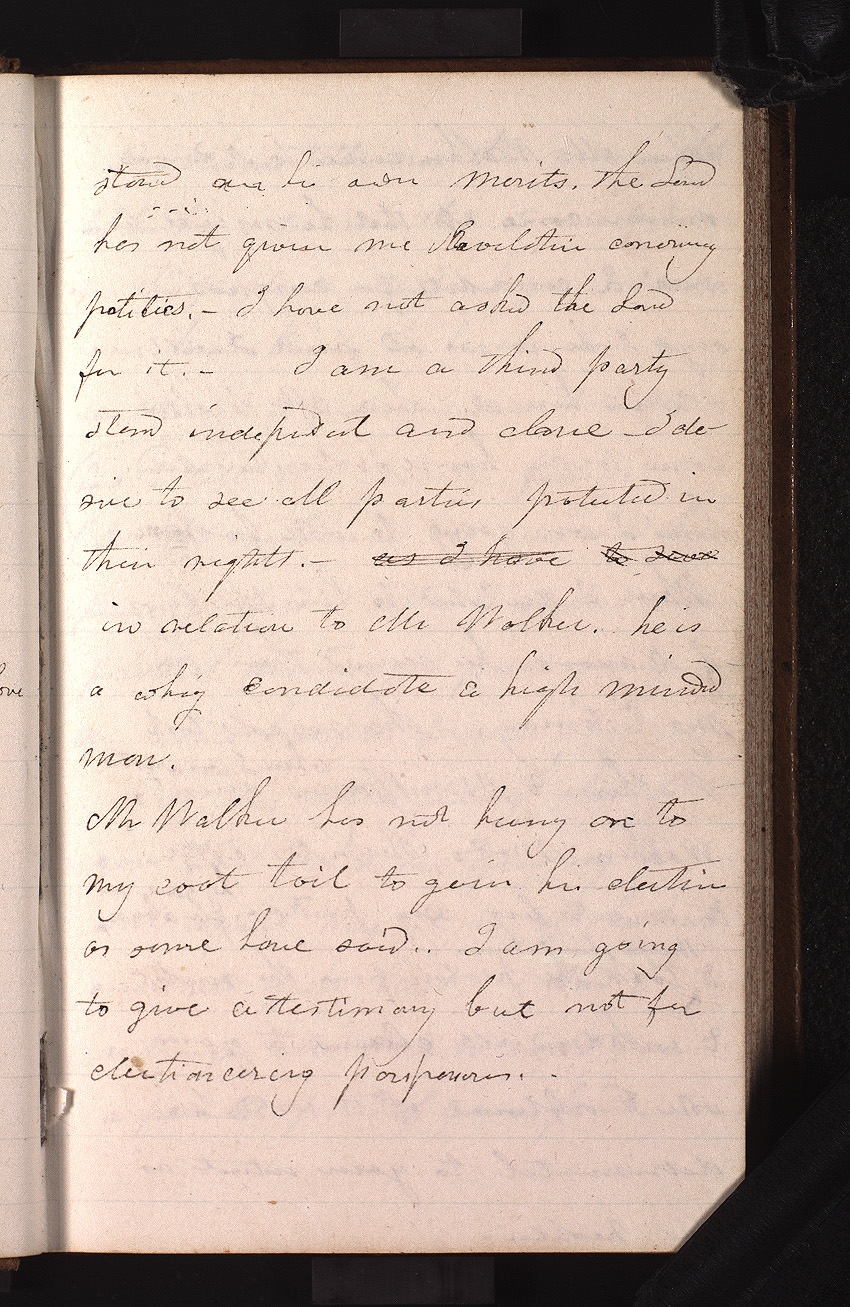 stand on his own merits. The Lord
has not given me Revelation concerning
politics.- I have not asked the Lord
for it.- I am a third party
stand independent and alone - I de-
sire to see all parties protected in
their rights.- as I have to some
in relation to Mr Walker. he is
a whig candidate a high minded
man.
Mr Walker has not hung on to
my coat tail to gain his election
as some have said.. I am going
to give a testimony but not for
electioneering purposes.-
ove